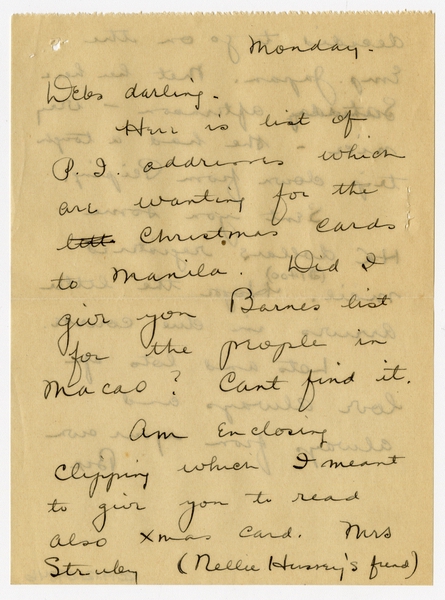 Monday.
Debs darling.
Here is list of
P. I. addresses which
are wanting for the
Christmas cards
to Manila. Did I
give you Barnes list
for the people in
Macao? Cant find it.
Am Enclosing
Clipping which I meant
to give you to read
also xmas card. Mrs
(Nellie Hussey's friend)